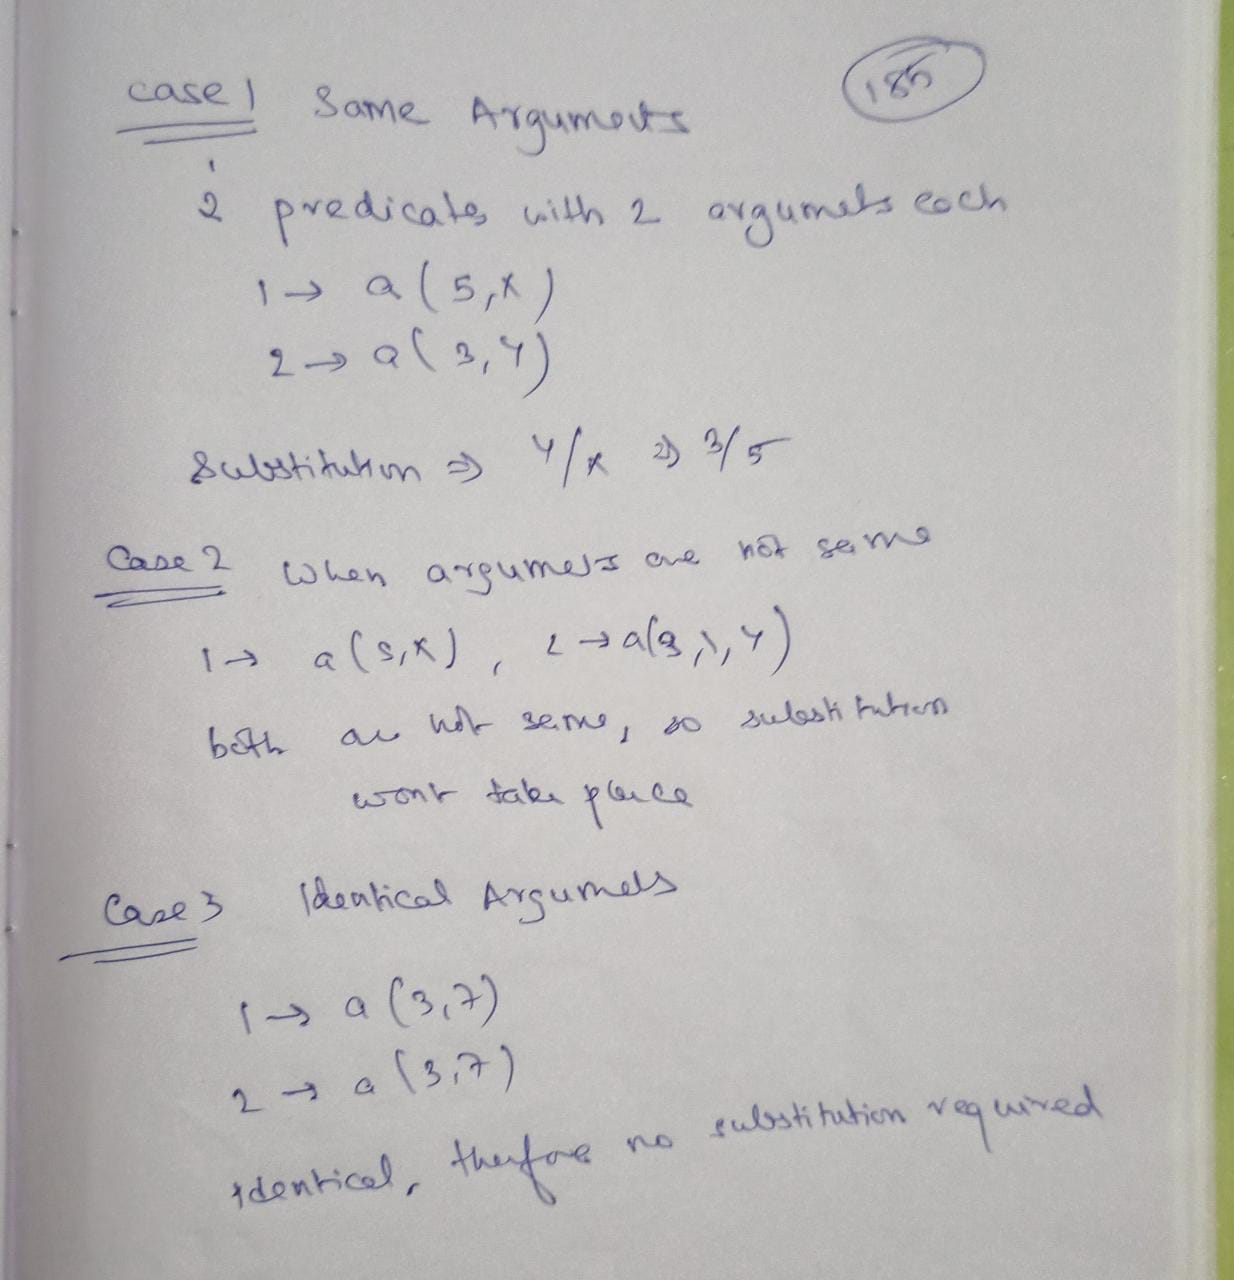 185
case 1 Same Arguments
2 predicates with 2 arguments each
1 → a(5,x)
2 → a(3,y)
Substitution ⇒ y/x ⇒ 3/5
Case 2 When arguments are not same
1 → a(5,x), 2 → a(3,1,y)
both are not same, so substitution
wont take place
Case 3 Identical Arguments
1 → a(3,7)
2 → a(3,7)
identical, therfore no substitution required